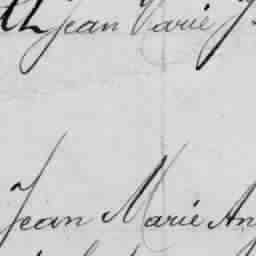 Jean Marie
Jean Marie An